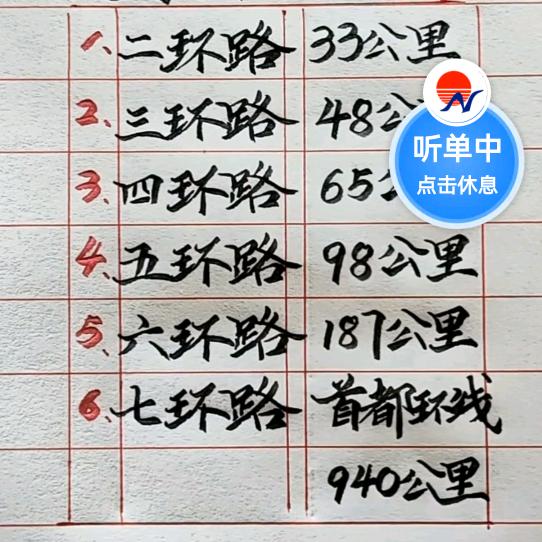 1、二环路 33公里
2、三环路 48公
听单中
点击休息
3、四环路 65公
4、五环路 98公里
5、六环路 187公里
6、七环路 首都环线
940公里